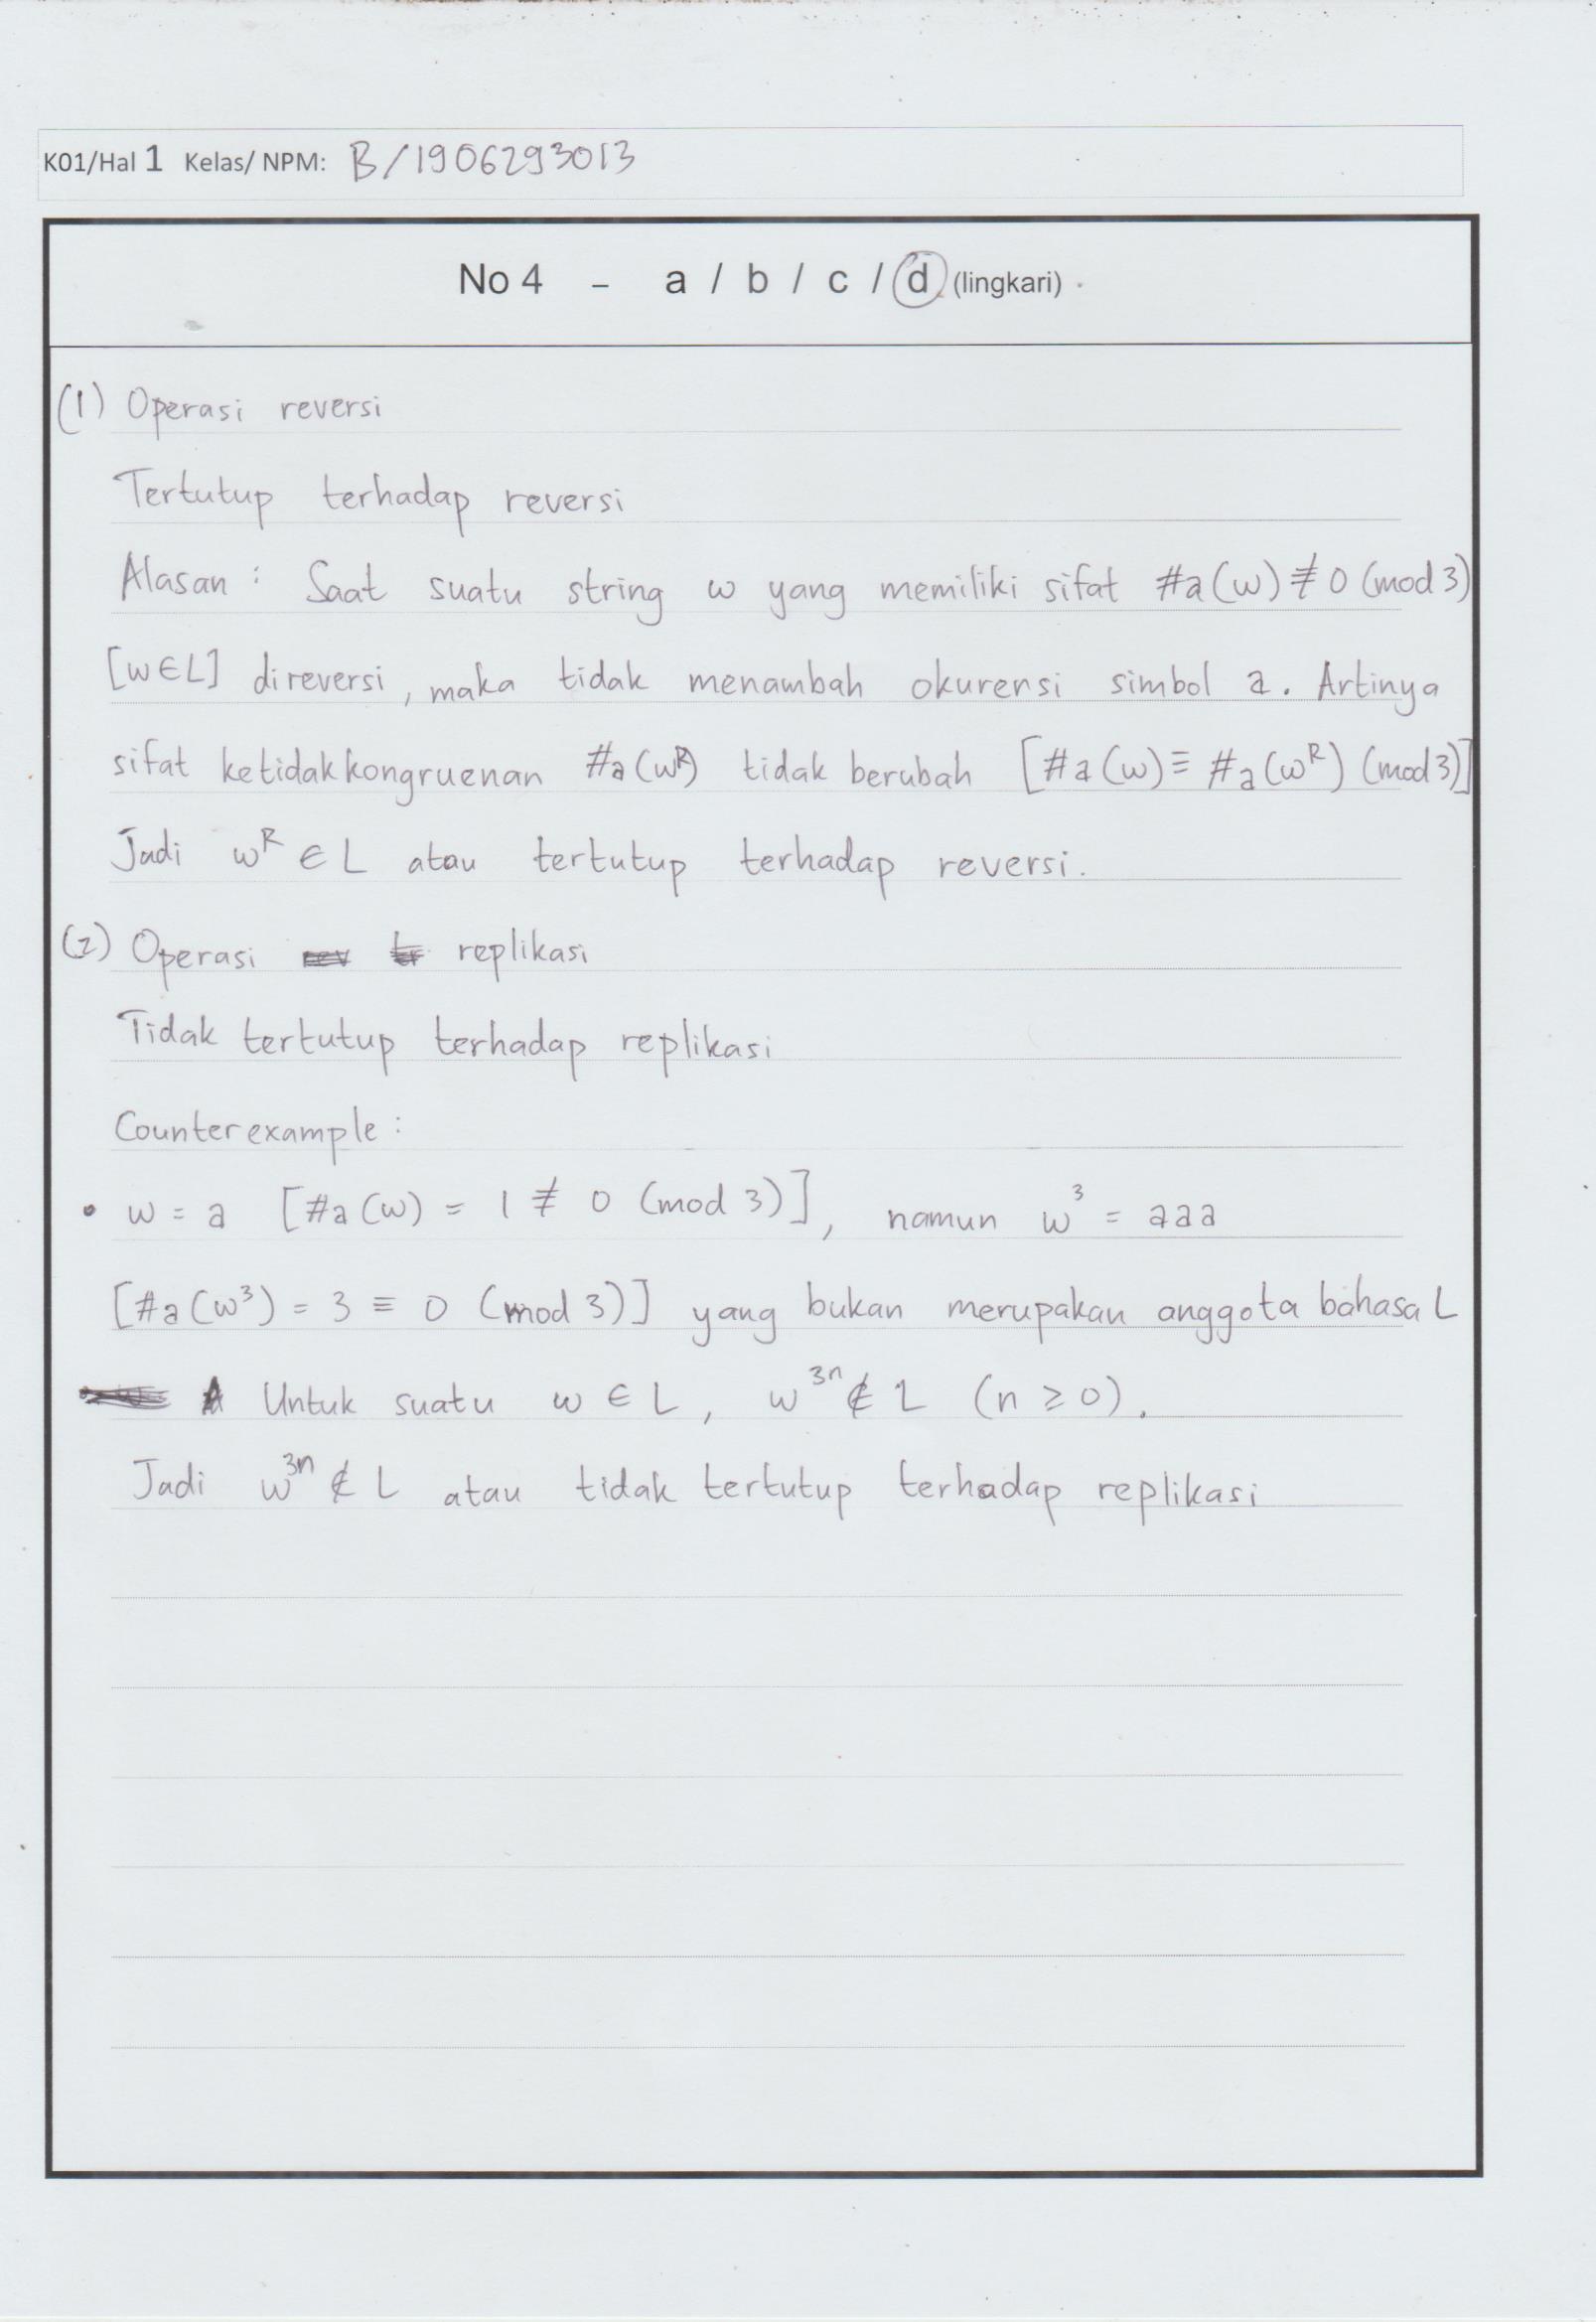 K01/Hal 1 Kelas/ NPM: B/1906293013
No 4 - a / b / c / d (lingkari)
(1) Operasi reversi
Tertutup terhadap reversi
Alasan : Saat suatu string w yang memiliki sifat #a(w) ≢ 0 (mod 3)
[w ∈ L] direversi, maka tidak menambah okurensi simbol a. Artinya
sifat ketidakkongruenan #a(wᴿ) tidak berubah [#a(w) ≡ #a(wᴿ) (mod 3)]
Jadi wᴿ ∈ L atau tertutup terhadap reversi.
(2) Operasi replikasi
Tidak tertutup terhadap replikasi
Counterexample :
• w = a [#a(w) = 1 ≢ 0 (mod 3)], namun w³ = aaa
[#a(w³) = 3 ≡ 0 (mod 3)] yang bukan merupakan anggota bahasa L
Untuk suatu w ∈ L, w³ⁿ ∉ L (n ≥ 0).
Jadi w³ⁿ ∉ L atau tidak tertutup terhadap replikasi